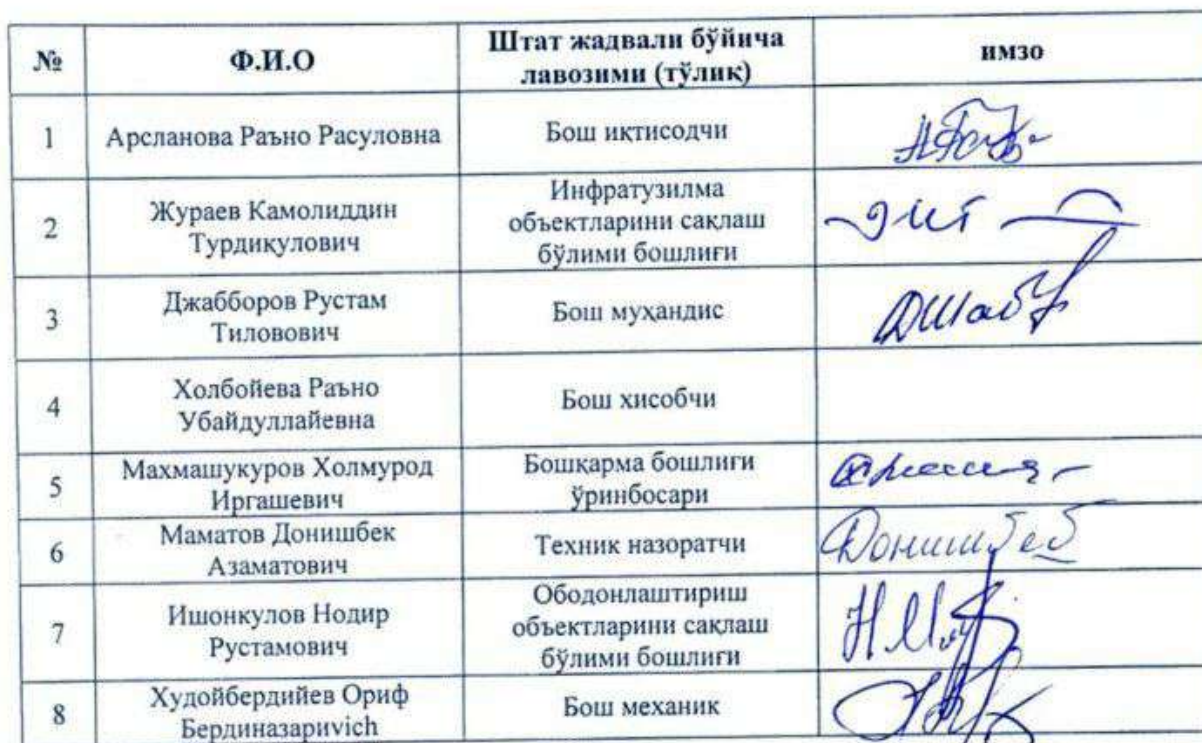 № Ф.И.О Штат жадвали бўйича лавозими (тўлиқ) имзо
1 Арсланова Раъно Расуловна Бош иқтисодчи
2 Жураев Камолиддин Турдиқулович Инфратузилма объектларини сақлаш бўлими бошлиғи
3 Джабборов Рустам Тиловович Бош муҳандис
4 Холбойева Раъно Убайдуллайевна Бош хисобчи
5 Махмашукуров Холмурод Иргашевич Бошқарма бошлиғи ўринбосари
6 Маматов Донишбек Азаматович Техник назоратчи
7 Ишонкулов Нодир Рустамович Ободонлаштириш объектларини сақлаш бўлими бошлиғи
8 Худойбердийев Ориф Бердиназариvich Бош механик